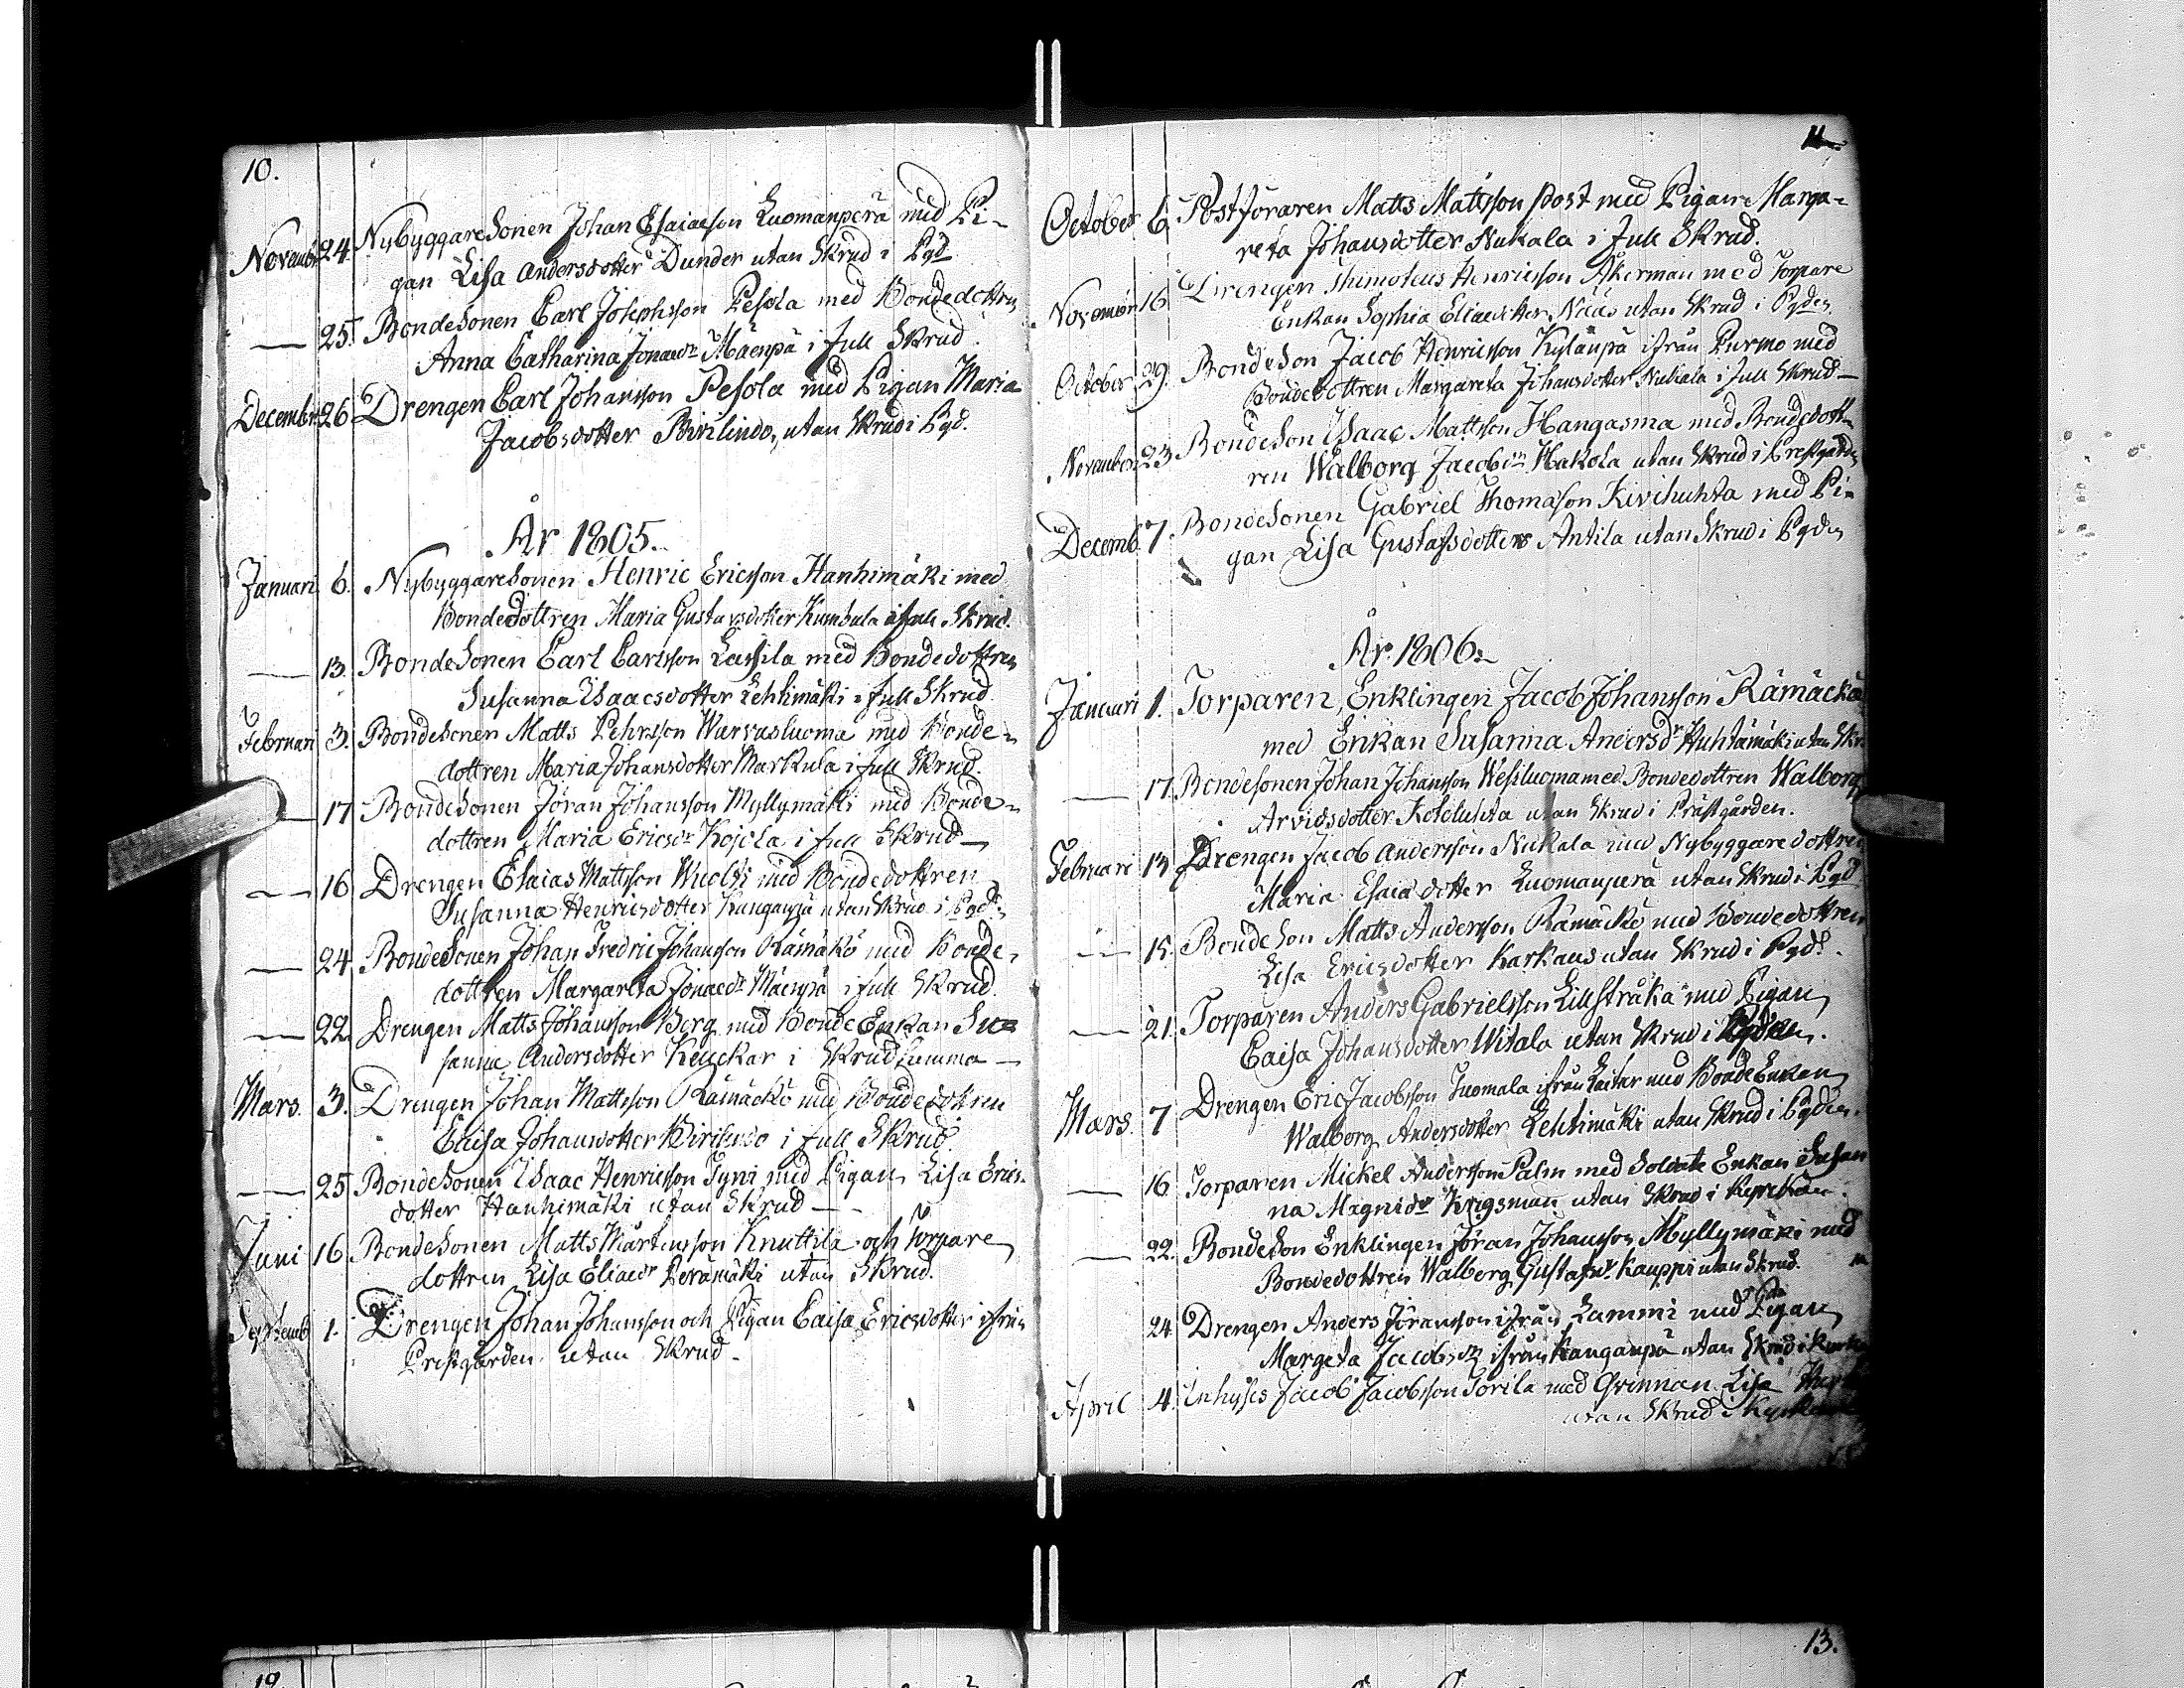 10.
Novembr 24. Nybyggaresonen Johan Esaiaesson Luomanperä med Pi-
gan Lisa Andersdotter Dunder utan Skrud i Pgd
25. Bondesonen Carl Josephsson Pesola med Bondedottren
Anna Catharina Jonaedr Mäenpä i full Skrud.
Decembr 26 Drengen Carl Johansson Pesola med Pigan Maria
Jacobsdotter utan Skrud i Pgd.
År 1805.
Januari 6. Nybyggaresonen Henric Ericsson Hanhimäki med
Bondedottren Maria Gustavsdotter Kumbula i full Skrud.
13. Bondesonen Carl Carlsson Lassila med Bondedottren
Susanna Isaacsdotter Lehtimäki i full Skrud
Februari 3. Bondesonen Matts Pehrsson Warvasluoma med Bonde-
dottren Maria Johansdotter Markula i full Skrud.
17 Bondesonen Jöran Johansson Myllymäki med Bonde-
dottren Maria Ericsdr Kojola i full Skrud
16 Drengen Esaias Mattsson med Bondedottren
Susanna Henricsdotter Kanganpä utan Skrud i Pgd.
24 Bondesonen Johan Fredric Johansson Rämäkö med Bonde-
dottren Margareta Jonaedr Mäenpä i full Skrud.
22 Drengen Matts Johansson Berg med Bonde Enkan Su=
sanna Andersdotter Keuckar i Skrudsamma
Mars. 3. Drengen Johan Mattsson Rämäckö med Bondedottren
Caisa Johansdotter i full Skrud.
25 Bondesonen Isaac Henricsson Tyni med Pigan Lisa Erics-
dotter Hanhimäki utan Skrud
Juni 16 Bondesonen Matts Mårtensson Knuttila och Torpare
dottren Lisa Eliaedr Perämäki utan Skrud.
Septemb 1. Drengen Johan Johansson och Pigan Caisa Ericsdotter ifrån
Prestgården utan Skrud.
11
October 6. Postföraren Matts Mattsson Post med Pigan Marga-
reta Johansdotter Nukala i full Skrud.
Novembr 16. Drengen Thimoteus Henricsson Åkerman med Torpare
Enkan Sophia Eliaedotter Nääs utan Skrud i Pgden
October 29. Bondeson Jacob Henricsson Kylänpä ifrån Purmo med
Bondedottren Margareta Johansdotter Nukala i full Skrud
November 23 Bondeson Isaac Mattsson Hangasma med Bondedott-
ren Walborg Jacobsdr Hakola utan Skrud i Prestgården
Decemb. 7. Bondesonen Gabriel Thomasson Kiviluhta med Pi-
gan Lisa Gustafsdotter Antila utan Skrud i Pgden
År 1806.
Januari 1. Torparen, Enklingen Jacob Johansson Rämäckö
med Enkan Susanna Andersdr Huhtamäki utan Skr.
17. Bondesonen Johan Johansson Wesiluoma med Bondedottren Walborg
Arvidsdotter Koteluhta utan Skrud i Prästgården.
Februari 13 Drengen Jacob Andersson Nukala med Nybyggaredottren
Maria Esaiaedotter Luomanperä utan Skrud i Pgd
15. Bondeson Matts Andersson Rämäckö med Bondedottren
Lisa Ericsdotter Karkaus utan Skrud i Pgd.
21. Torparen Anders Gabrielsson Lillstråka med Pigan
Caisa Johansdotter Witala utan Skrud i Pgden.
Mars. 7 Drengen Eric Jacobsson Tuomala ifrån med Bonde Enkan
Walborg Andersdotter Lehtimäki utan Skrud i Pgden.
16 Torparen Mickel Andersson Palm med Soldate Enkan Susan
na Magnidr Krigsman utan Skrud i Kyrckan.
22. Bondeson Enklingen Jöran Johansson Myllymäki med
Bondedottren Walborg Gustafsdr Kauppi utan Skrud.
24 Drengen Anders Jöransson ifrån Lammi med Pigan
Margeta Jacobsdr ifrån Kanganpä utan Skrud i
April 4. Inhyses Jacob Jacobsson Torila med Qvinnan Lisa
utan Skrud i
12.
13.